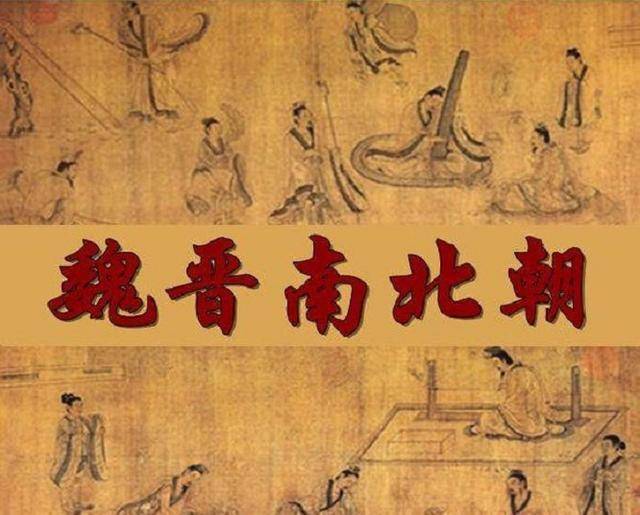 魏晋南北朝